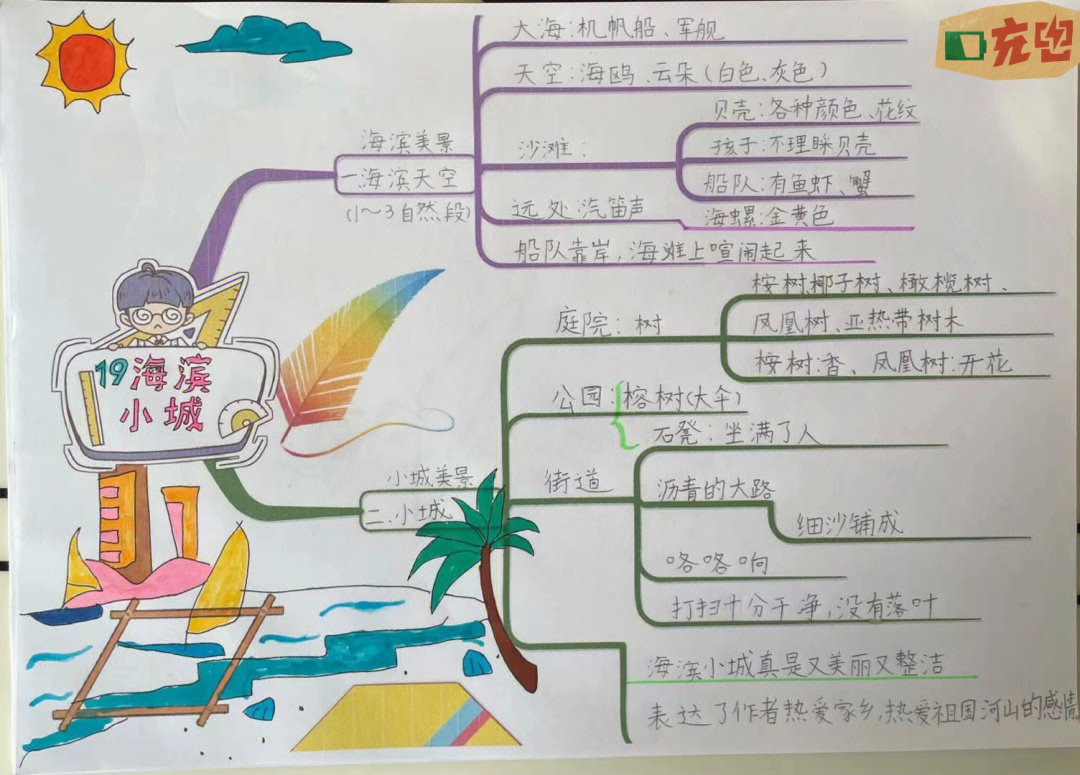 充兜
大海:机帆船、军舰
天空:海鸥、云朵(白色、灰色)
海滨美景
一.海滨天空
(1~3自然段)
沙滩:
贝壳:各种颜色、花纹
孩子:不理睬贝壳
船队:有鱼虾、蟹
远处:汽笛声
海螺:金黄色
船队靠岸,海滩上喧闹起来
19海滨
小城
小城美景
二.小城
庭院:树
桉树、椰子树、橄榄树、
凤凰树、亚热带树木
桉树:香、凤凰树:开花
公园:榕树(大伞)
石凳:坐满了人
街道
沥青的大路
细沙铺成
咯咯响
打扫十分干净,没有落叶
海滨小城真是又美丽又整洁
表达了作者热爱家乡,热爱祖国河山的感情